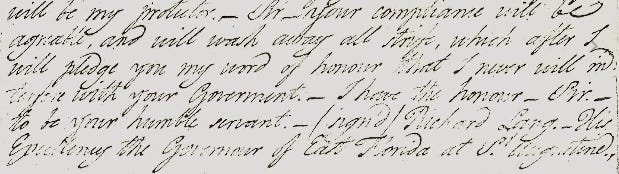 will be my protector. – Sir – Your compliance will be
agreable, and will wash away all strife, which after I
will pledge you my word of honour that I never will in-
terfere with your Goverment. – I have the honour – Sir. –
to be your humble servant. – (signd) Richard Lang. – His
Excellency the Governour of East Florida at St. Augustine.,